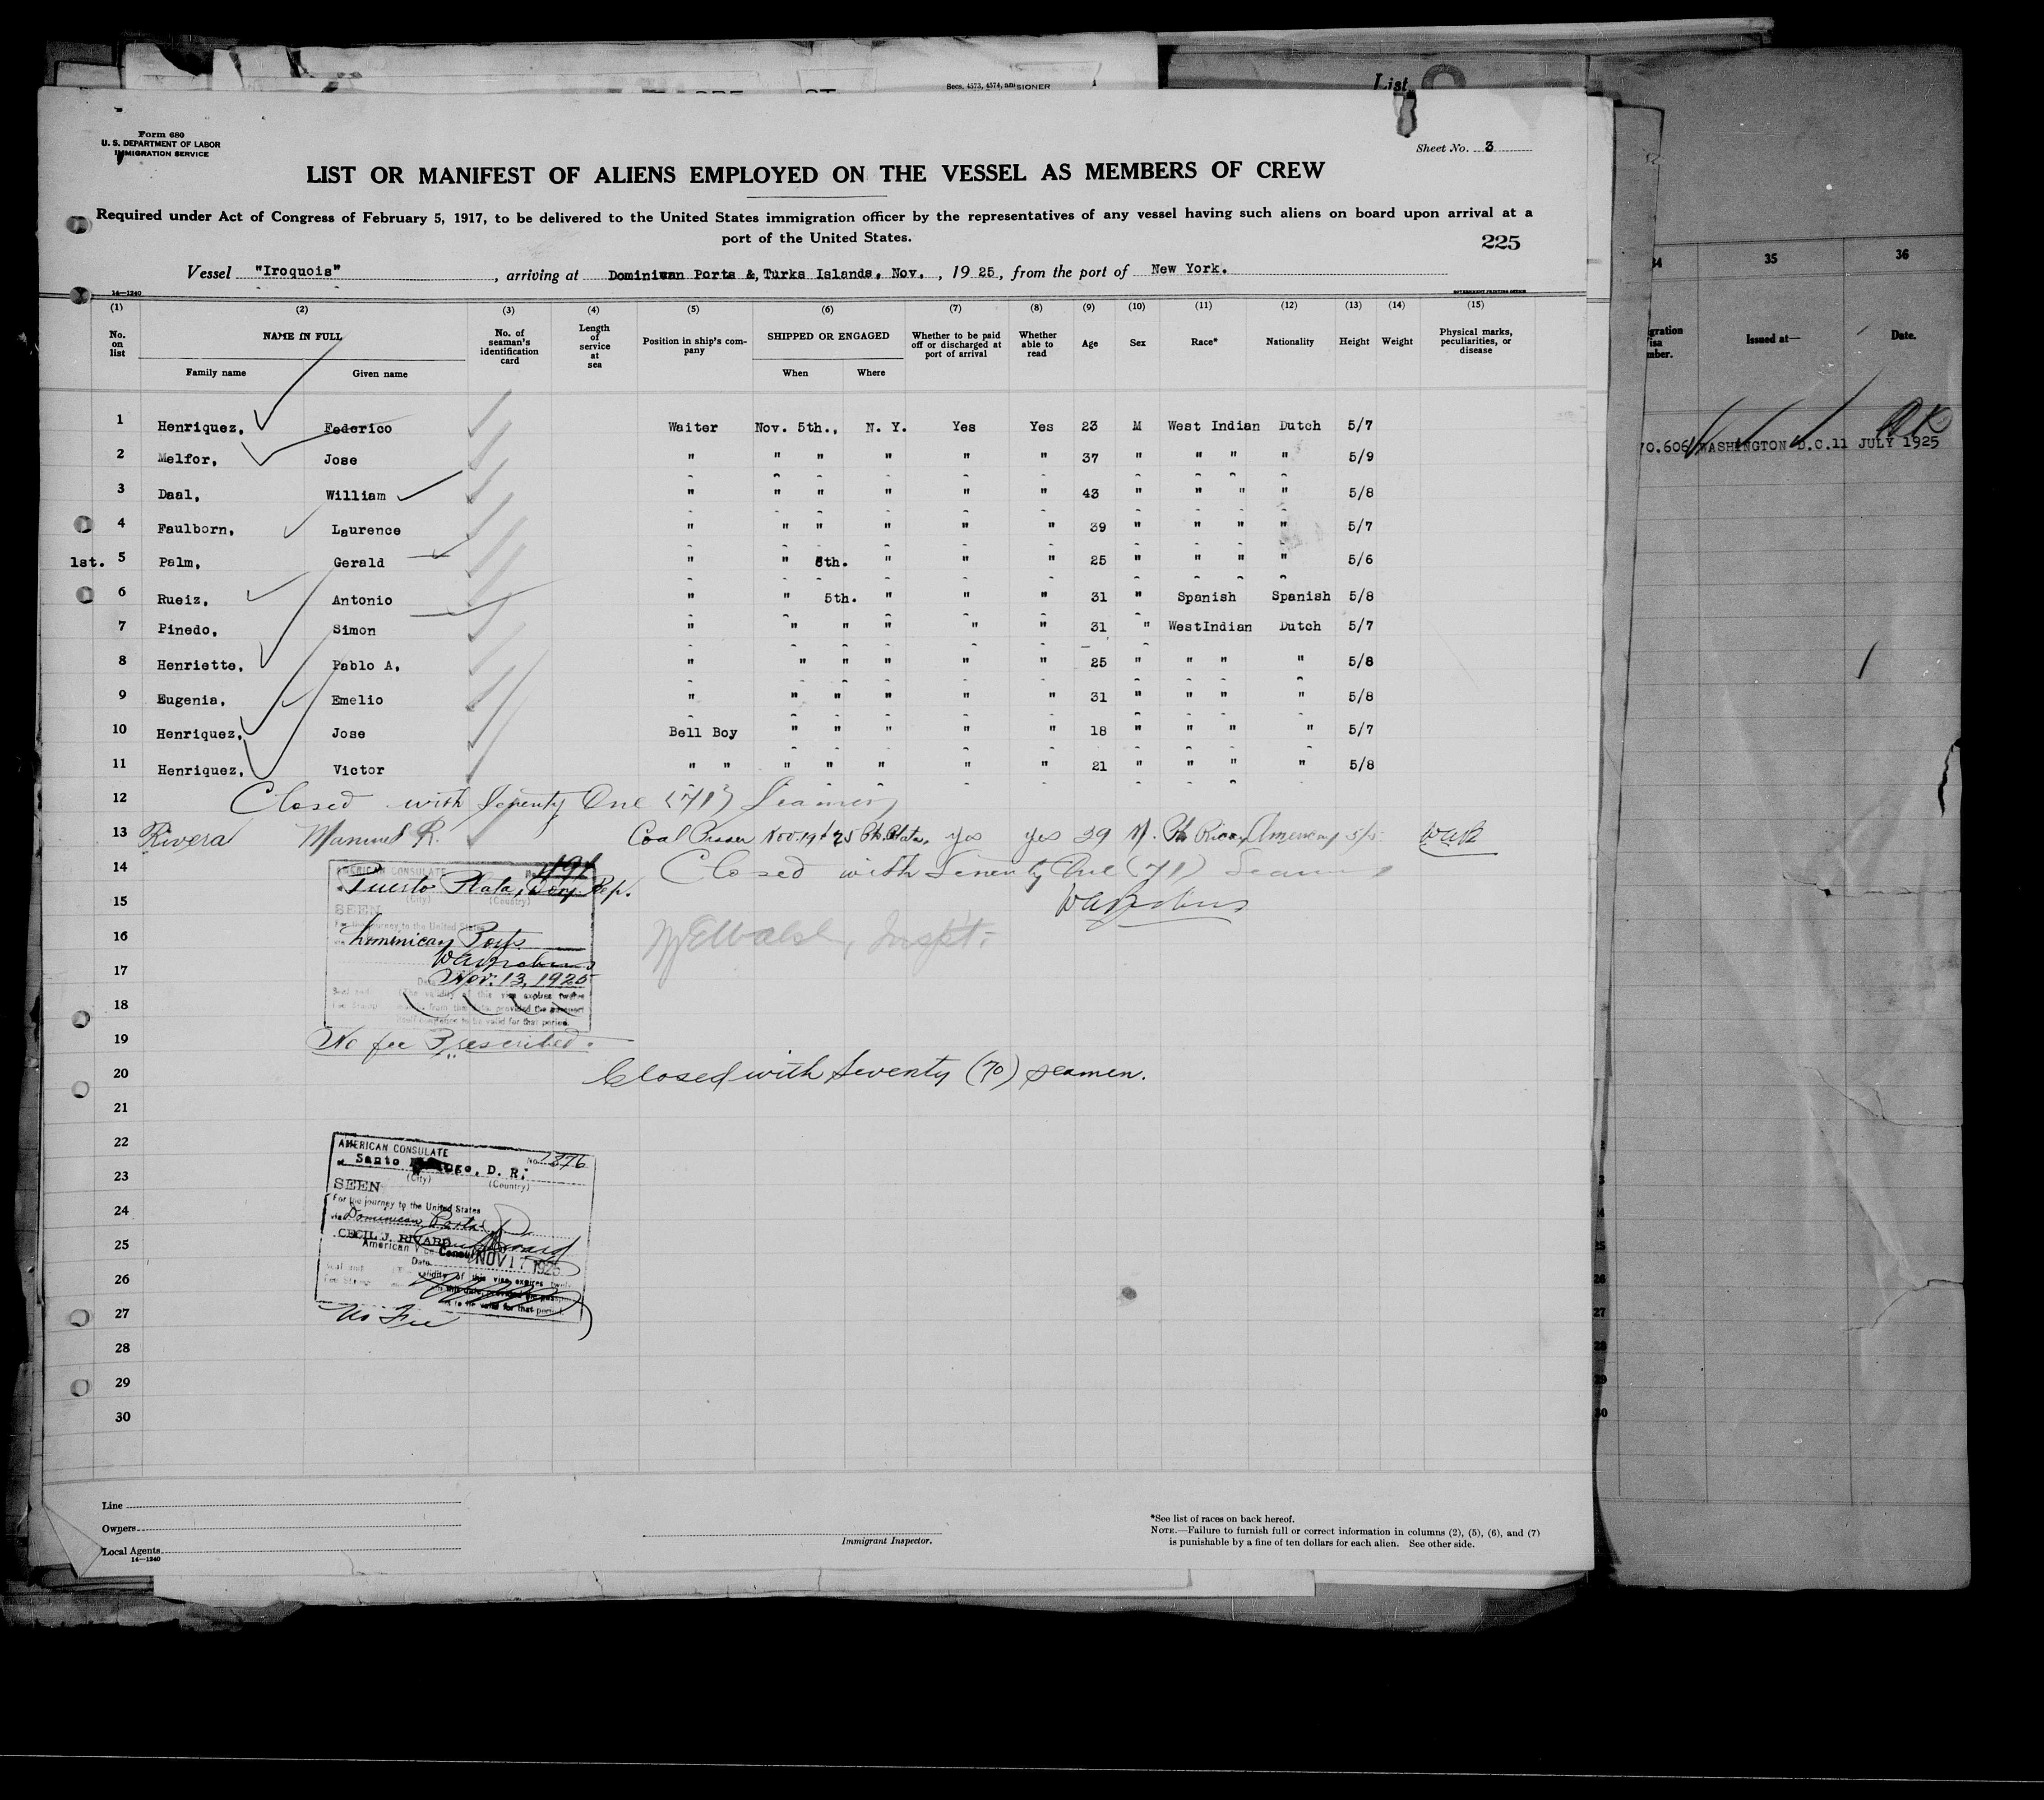 Secs. 4573, 4574, an
SIONER
List
Form 680
U. S. DEPARTMENT OF LABOR
IMMIGRATION SERVICE
Sheet No. 3
LIST OR MANIFEST OF ALIENS EMPLOYED ON THE VESSEL AS MEMBERS OF CREW
Required under Act of Congress of February 5, 1917, to be delivered to the United States immigration officer by the representatives of any vessel having such aliens on board upon arrival at a
port of the United States.
225
Vessel "Iroquois", arriving at Dominican Ports &, Turks Islands, Nov. , 1925, from the port of New York.
14—1240
GOVERNMENT PRINTING OFFICE
(1) (2) (3) (4) (5) (6) (7) (8) (9) (10) (11) (12) (13) (14) (15)
No. on list NAME IN FULL Family name Given name No. of seaman's identification card Length of service at sea Position in ship's company SHIPPED OR ENGAGED When Where Whether to be paid off or discharged at port of arrival Whether able to read Age Sex Race* Nationality Height Weight Physical marks, peculiarities, or disease
1 Henriquez, Federico Waiter Nov. 5th., N. Y. Yes Yes 23 M West Indian Dutch 5/7
2 Melfor, Jose " " " " " " 37 " " " " 5/9
3 Daal, William " " " " " " 43 " " " " 5/8
4 Faulborn, Laurence " " " " " " 39 " " " " 5/7
1st. 5 Palm, Gerald " " 6th. " " " 25 " " " " 5/6
6 Rueiz, Antonio " " 5th. " " " 31 " Spanish Spanish 5/8
7 Pinedo, Simon " " " " " " 31 " WestIndian Dutch 5/7
8 Henriette, Pablo A. " " " " " " 25 " " " " 5/8
9 Eugenia, Emelio " " " " " " 31 " " " " 5/8
10 Henriquez, Jose Bell Boy " " " " " 18 " " " " 5/7
11 Henriquez, Victor " " " " " " " 21 " " " " 5/8
12 Closed with Seventy One (71) Seamen
13 Rivera Manuel R. Coal Passer Nov. 19/25 Pto Plata, Yes Yes 29 M. Pto Rican American 5/5
14 Closed with Seventy One (71) Seamen
AMERICAN CONSULATE
Puerto Plata, Dom. Rep.
(City) (Country)
15
SEEN
For the journey to the United States
16 Dominican Ports
Walsh, Inspt.
17 Nov. 13, 1925
18
The validity of this visa expires twelve
from this date, provided the passport
to be valid for that period.
19 No fee Prescribed.
20 Closed with Seventy (70) seamen.
21
22
AMERICAN CONSULATE
No. 2376
23 Santo Domingo, D. R.
(City) (Country)
SEEN
24 For the journey to the United States
via Dominican Ports
25 CECIL J. RIVARD
American Vice Consul
Date NOV 17 1925
26 validity of this visa expires twelve
this date, provided the passport
to be valid for that period.
27 No Fee
28
29
30
Line
Owners
Local Agents
14—1240
Immigrant Inspector.
*See list of races on back hereof.
NOTE.—Failure to furnish full or correct information in columns (2), (5), (6), and (7)
is punishable by a fine of ten dollars for each alien. See other side.
34 35 36
gration
isa
mber.
Issued at—
Date.
OK
70.606 WASHINGTON D.C. 11 JULY 1925
25
26
27
28
29
30